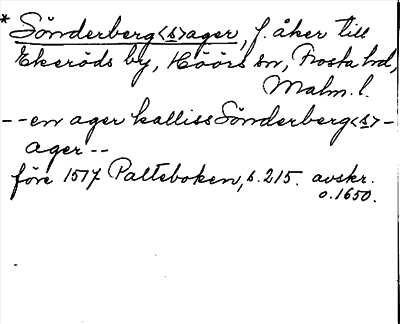 * Sönderberg<s>ager, f. åker till
Ekeröds by, Höörs sn, Frosta hd,
Malm. l.
-- en ager kalliss Sönderberg<s>-
ager --
före 1517 Palteboken, s. 215. avskr.
o. 1650.